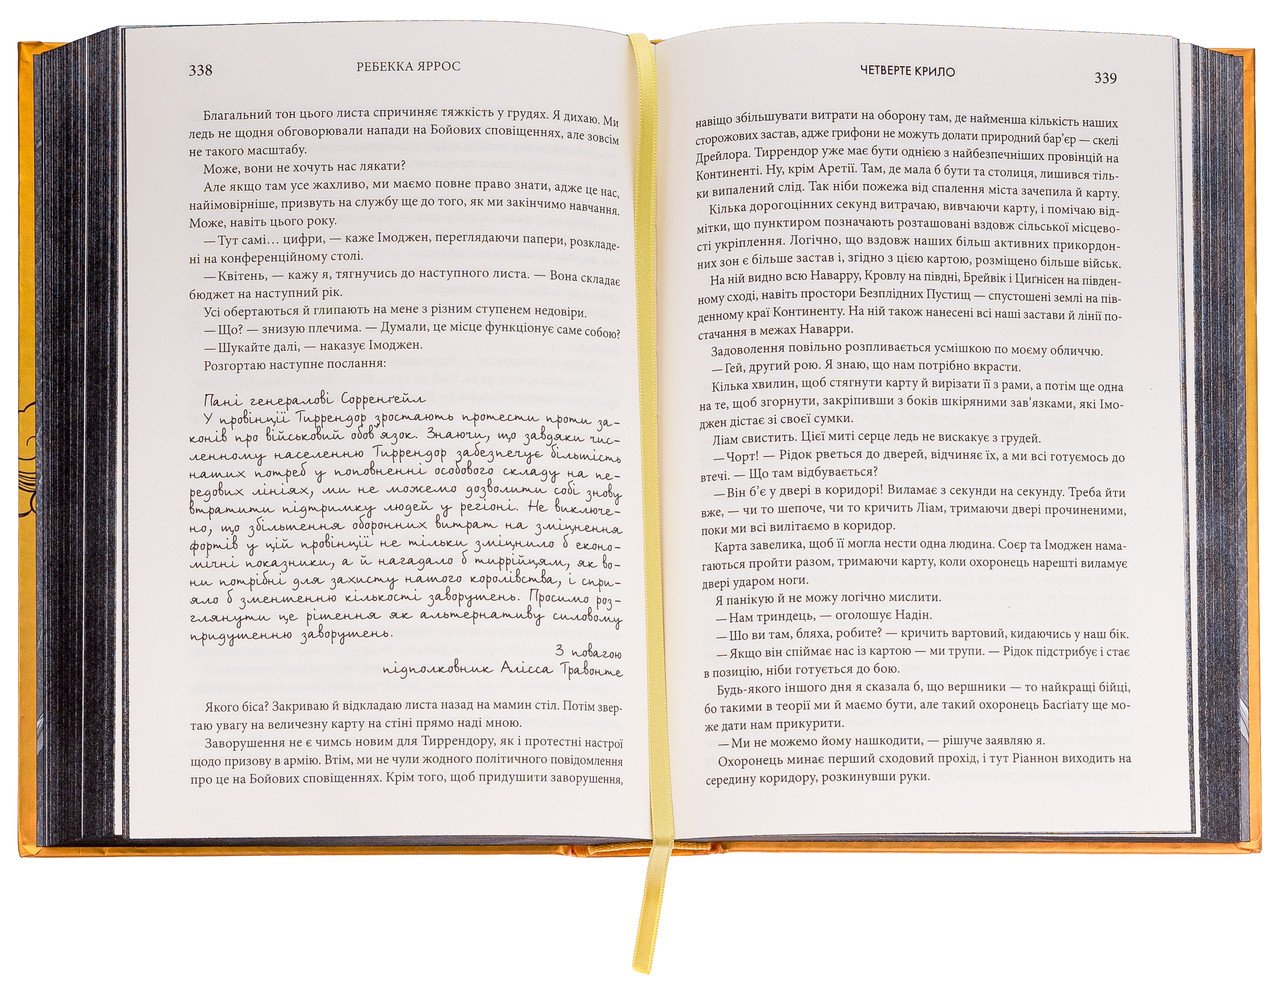 338
РЕБЕККА ЯРРОС
Благальний тон цього листа спричиняє тяжкість у грудях. Я дихаю. Ми
ледь не щодня обговорювали напади на Бойових сповіщеннях, але зовсім
не такого масштабу.
Може, вони не хочуть нас лякати?
Але якщо там усе жахливо, ми маємо повне право знати, адже це нас,
найімовірніше, призвуть на службу ще до того, як ми закінчимо навчання.
Може, навіть цього року.
— Тут самі… цифри, — каже Імоджен, переглядаючи папери, розкладе-
ні на конференційному столі.
— Квітень, — кажу я, тягнучись до наступного листа. — Вона складає
бюджет на наступний рік.
Усі обертаються й глипають на мене з різним ступенем недовіри.
— Що? — знизую плечима. — Думали, це місце функціонує саме собою?
— Шукайте далі, — наказує Імоджен.
Розгортаю наступне послання:
Пані генералові Сорренґейл
У провінції Тиррендор зростають протести проти за-
конів про військовий обов'язок. Знаючи, що завдяки чис-
ленному населенню Тиррендор забезпечує більшість
наших потреб у поповненні особового складу на пе-
редових лініях, ми не можемо дозволити собі знову
втратити підтримку людей у регіоні. Не виключе-
но, що збільшення оборонних витрат на зміцнення
фортів у цій провінції не тільки зміцнило б еконо-
мічні показники, а й нагадало б тиррійцям, як во-
ни потрібні для захисту нашого королівства, і спри-
яло б зменшенню кількості заворушень. Просимо роз-
глянути це рішення як альтернативу силовому
придушенню заворушень.
З повагою
підполковник Алісса Травонте
Якого біса? Закриваю й відкладаю листа назад на мамин стіл. Потім звер-
таю увагу на величезну карту на стіні прямо наді мною.
Заворушення не є чимсь новим для Тиррендору, як і протестні настрої
щодо призову в армію. Втім, ми не чули жодного політичного повідомлення
про це на Бойових сповіщеннях. Крім того, щоб придушити заворушення,
ЧЕТВЕРТЕ КРИЛО
339
навіщо збільшувати витрати на оборону там, де найменша кількість наших
сторожових застав, адже грифони не можуть долати природний бар’єр — скелі
Дрейлора. Тиррендор уже має бути однією з найбезпечніших провінцій на
Континенті. Ну, крім Аретії. Там, де мала б бути та столиця, лишився тіль-
ки випалений слід. Так ніби пожежа від спалення міста зачепила й карту.
Кілька дорогоцінних секунд витрачаю, вивчаючи карту, і помічаю від-
мітки, що пунктиром позначають розташовані вздовж сільської місцево-
сті укріплення. Логічно, що вздовж наших більш активних прикордон-
них зон є більше застав і, згідно з цією картою, розміщено більше військ.
На ній видно всю Наварру, Кровлу на півдні, Брейвік і Циґнісен на півден-
ному сході, навіть простори Безплідних Пустищ — спустошені землі на пів-
денному краї Континенту. На ній також нанесені всі наші застави й лінії по-
стачання в межах Наварри.
Задоволення повільно розпливається усмішкою по моєму обличчю.
— Гей, другий рою. Я знаю, що нам потрібно вкрасти.
Кілька хвилин, щоб стягнути карту й вирізати її з рами, а потім ще одна
на те, щоб згорнути, закріпивши з боків шкіряними зав’язками, які Імо-
джен дістає зі своєї сумки.
Ліам свистить. Цієї миті серце ледь не вискакує з грудей.
— Чорт! — Рідок рветься до дверей, відчиняє їх, а ми всі готуємось до
втечі. — Що там відбувається?
— Він б’є у двері в коридорі! Виламає з секунди на секунду. Треба йти
вже, — чи то шепоче, чи то кричить Ліам, тримаючи двері прочиненими,
поки ми всі вилітаємо в коридор.
Карта завелика, щоб її могла нести одна людина. Соєр та Імоджен нама-
гаються пройти разом, тримаючи карту, коли охоронець нарешті виламує
двері ударом ноги.
Я панікую й не можу логічно мислити.
— Нам триндець, — оголошує Надін.
— Шо ви там, бляха, робите? — кричить вартовий, кидаючись у наш бік.
— Якщо він спіймає нас із картою — ми трупи. — Рідок підстрибує і стає
в позицію, ніби готується до бою.
Будь-якого іншого дня я сказала б, що вершники — то найкращі бійці,
бо такими в теорії ми й маємо бути, але такий охоронець Басґіату ще мо-
же дати нам прикурити.
— Ми не можемо йому нашкодити, — рішуче заявляю я.
Охоронець минає перший сходовий прохід, і тут Ріаннон виходить на
середину коридору, розкинувши руки.